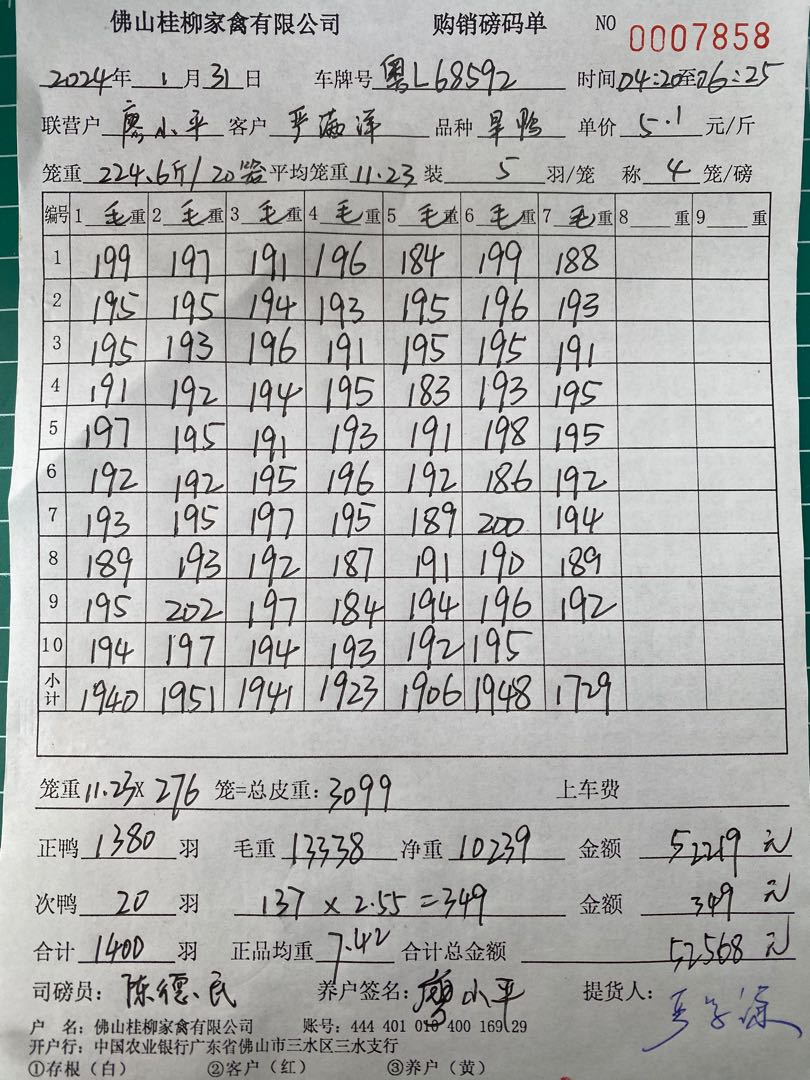 佛山桂柳家禽有限公司 购销磅码单 NO 0007858
2024年 1月31日 车牌号 粤L68592 时间04:20至06:25
联营户 廖小平 客户 严满洋 品种 旱鸭 单价 5.1 元/斤
笼重 224.6斤/20笼 平均笼重 11.23 装 5 羽/笼 称 4 笼/磅
编号 1 毛重 2 毛重 3 毛重 4 毛重 5 毛重 6 毛重 7 毛重 8 重 9 重
1 199 197 191 196 184 199 188
2 195 195 194 193 195 196 193
3 195 193 196 191 195 195 191
4 191 192 194 195 183 193 195
5 197 195 191 193 191 198 195
6 192 192 195 196 192 186 192
7 193 195 197 195 189 200 194
8 189 193 192 187 191 190 189
9 195 202 197 184 194 196 192
10 194 197 194 193 192 195
小计 1940 1951 1941 1923 1906 1948 1729
笼重 11.23 x 276 笼=总皮重: 3099 上车费
正鸭 1380 羽 毛重 13338 净重 10239 金额 52219 元
次鸭 20 羽 137 x 2.55 = 349 金额 349 元
合计 1400 羽 正品均重 7.42 合计总金额 52568 元
司磅员: 陈德民 养户签名: 廖小平 提货人:
户 名: 佛山桂柳家禽有限公司 账号: 444 401 010 400 169 29
开户行: 中国农业银行广东省佛山市三水区三水支行
①存根（白） ②客户（红） ③养户（黄）